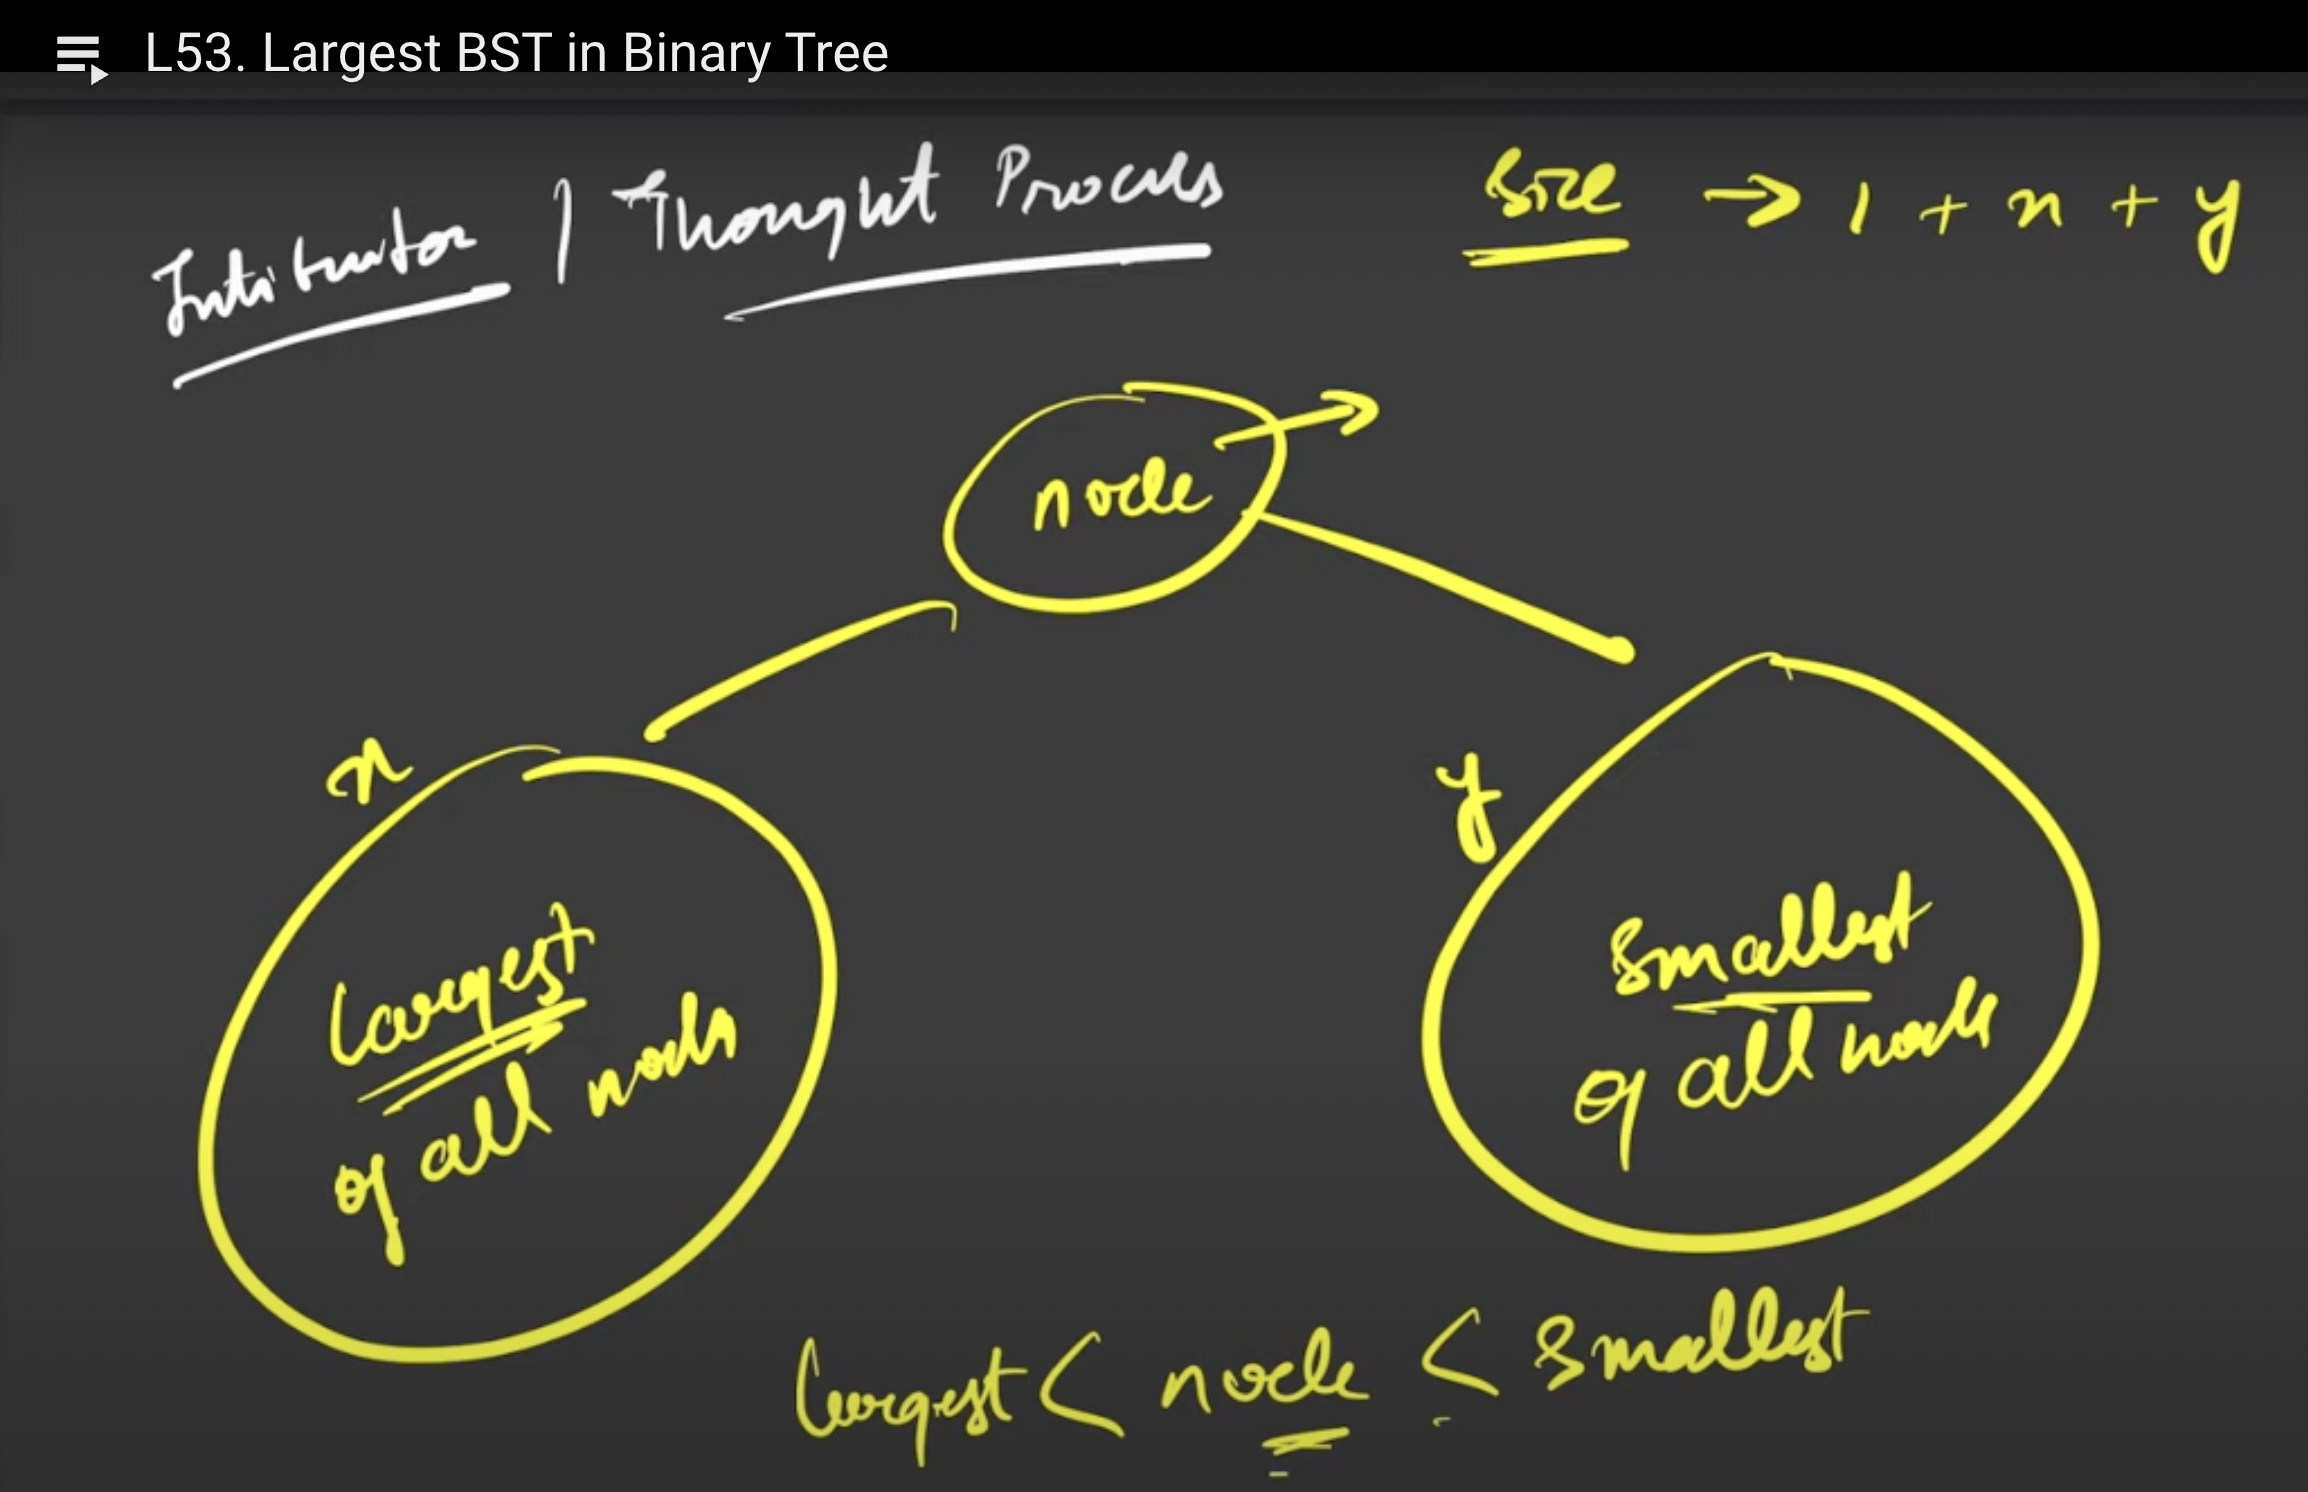 L53. Largest BST in Binary Tree
Intituitor | Thought Process
Size → 1 + x + y
node
x
y
Largest
of all nodes
smallest
of all nodes
largest < node < smallest